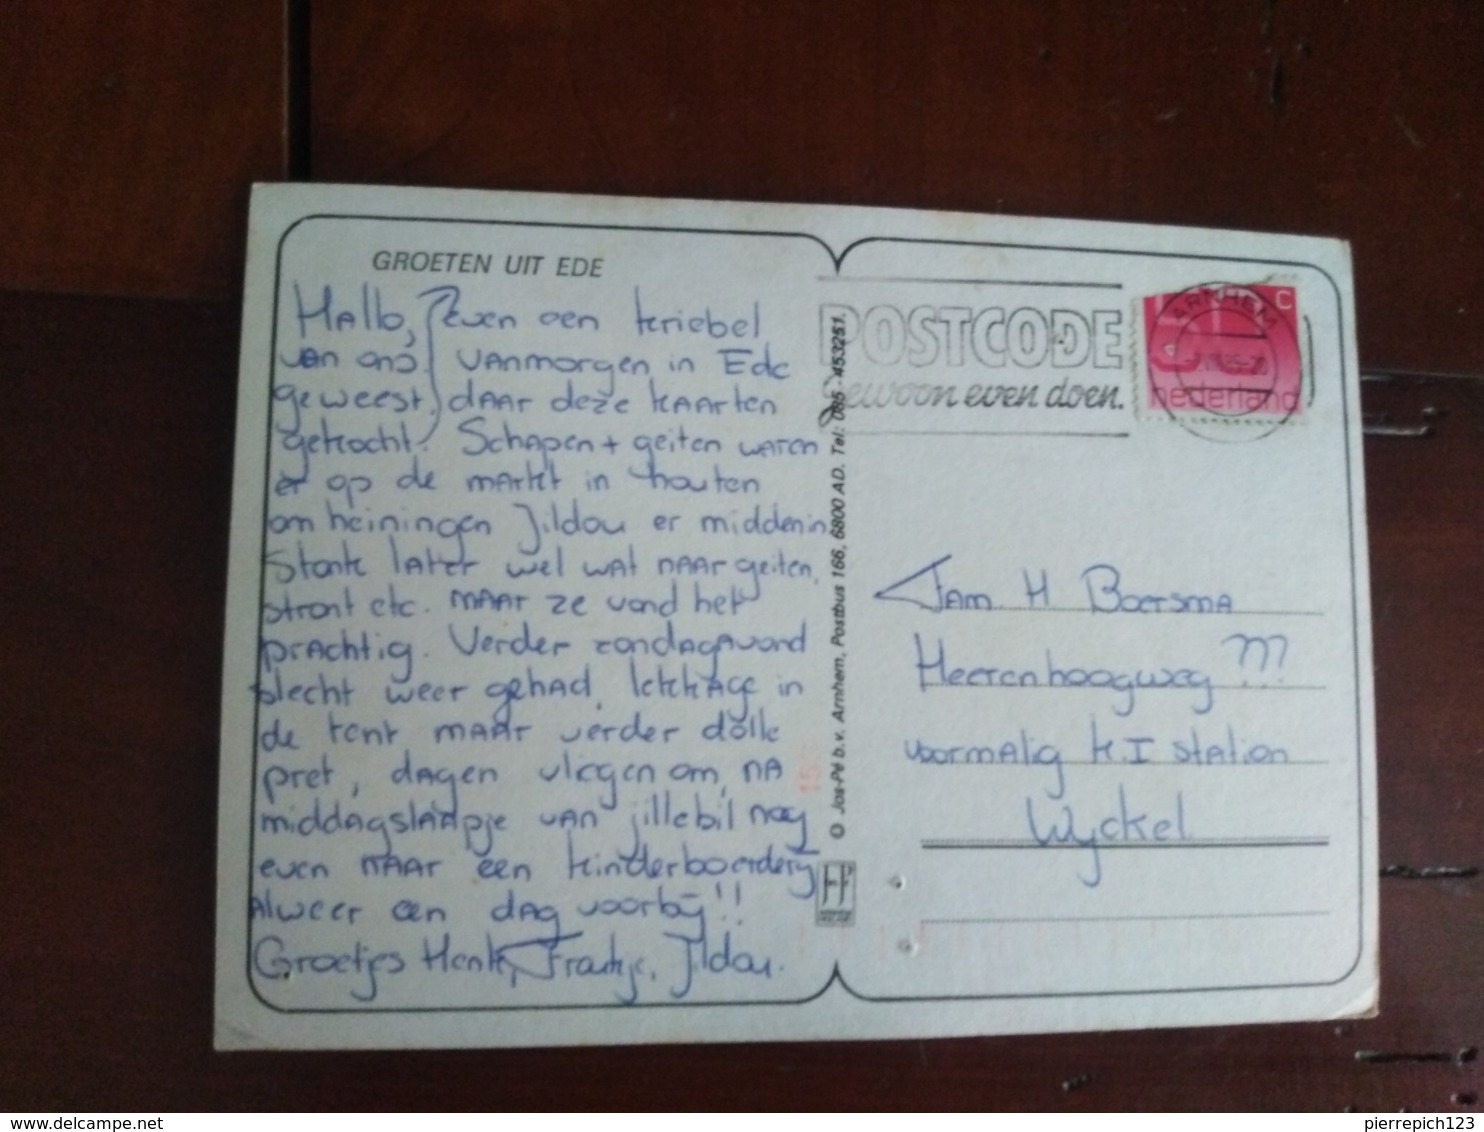 GROETEN UIT EDE
Hallo, even een kriebel
van ons vanmorgen in Ede
geweest, daar deze kaarten
gekocht. Schapen + geiten waren
er op de markt in houten
omheiningen Jildou er middenin.
Stonk later wel wat naar geiten,
stront etc. maar ze vond het
prachtig. Verder zondagavond
slecht weer gehad, lekkage in
de tent maar verder dolle
pret, dagen vliegen om, na
middagslaapje van jillebil nog
even naar een kinderboerderij
Alweer een dag voorbij!!
Groetjes Henk, Froukje, Jildou.
© Jos-Pé b.v. Arnhem, Postbus 166, 6800 AD. Tel: 085 - 453251.
POSTCODE
gewoon even doen.
ARNHEM
c
nederland
Fam. H Boersma
Heerenhoogweg ???
voormalig K.I station
Wyckel
pierrepich123